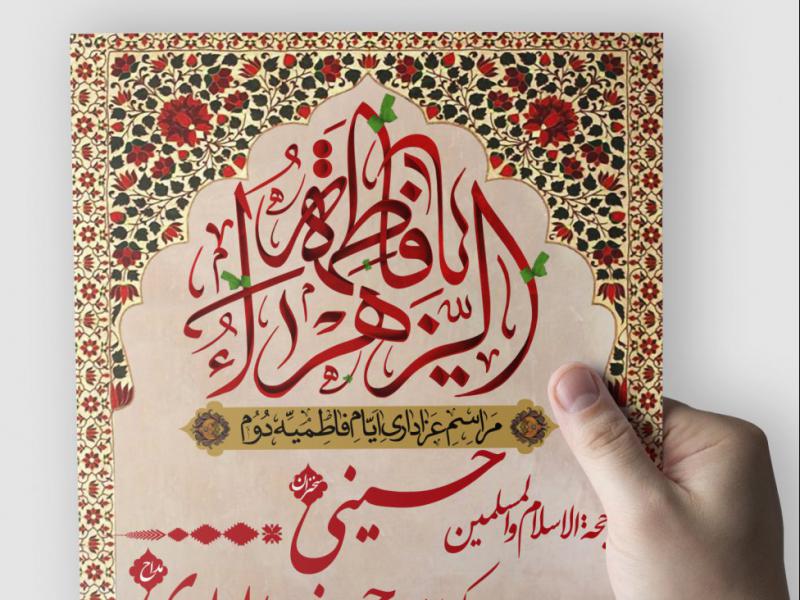 یا فاطمة
الزهراء
مراسم عزاداری ایام فاطمیه دوم
سخنران
حجة الاسلام والمسلمین
حسینی
مداح